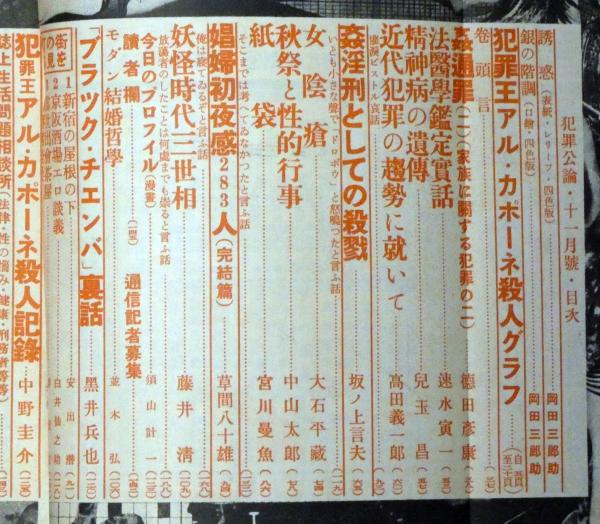 犯罪公論・十一月號・目次
誘惑（表紙・レリーフ・四色版）……岡田三郎助
銀の階調（口繪・四色版）……岡田三郎助
犯罪王アル・カポーネ殺人グラフ……（自一頁至三頁）
卷頭言
姦通罪（二）（家族に關する犯罪の二）……德田彥康
法醫學鑑定實話……速水寅一
精神病の遺傳……兒玉昌
近代犯罪の趨勢に就いて……高田義一郎
姦淫刑としての殺戮……坂ノ上言夫
いとも小さな聲で「ドロボウ」と怒鳴つたと言ふ話
女陰瘡……大石平藏
秋祭と性的行事……中山太郎
紙袋……宮川曼魚
そこまでは考へてゐなかつたと言ふ話
娼婦初夜感283人（完結篇）……草間八十雄
俺は寢てゐるぞと言ふ話
妖怪時代三世相……藤井清
放蕩者のしたことは何處までも祟ると言ふ話
今日のプロフイル（漫畫）……須山計一
讀者欄
通信記者募集
モダン結婚哲學……並木弘
「ブラック・チエンバ」裏話……黑井兵也
街を
1 新宿の屋根の下……安出潛
2 京阪酒場エロ談義……白井仙之助
犯罪王アル・カポーネ殺人記錄……中野圭介
誌上生活問題相談所（法律・性の惱み・健康・刑務者等等）